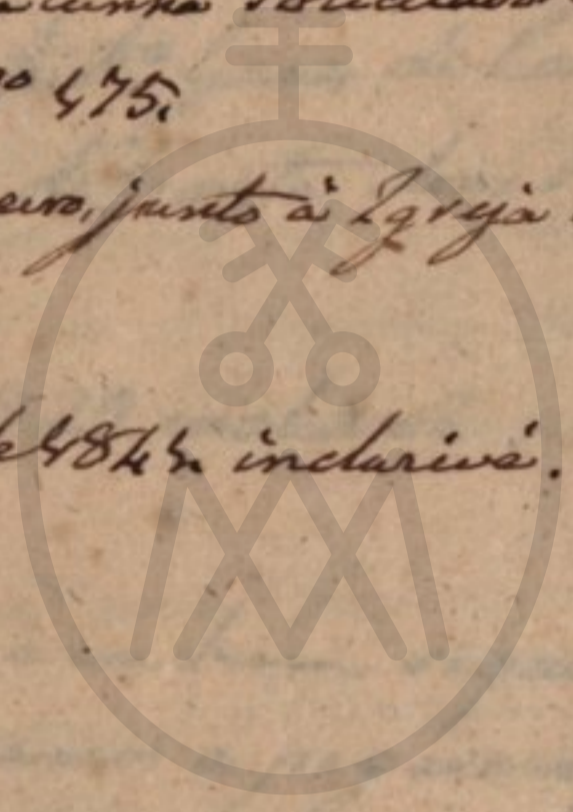 Cunha
º 175.
eiro, junto à Igreja
de 1841. inclusivé.